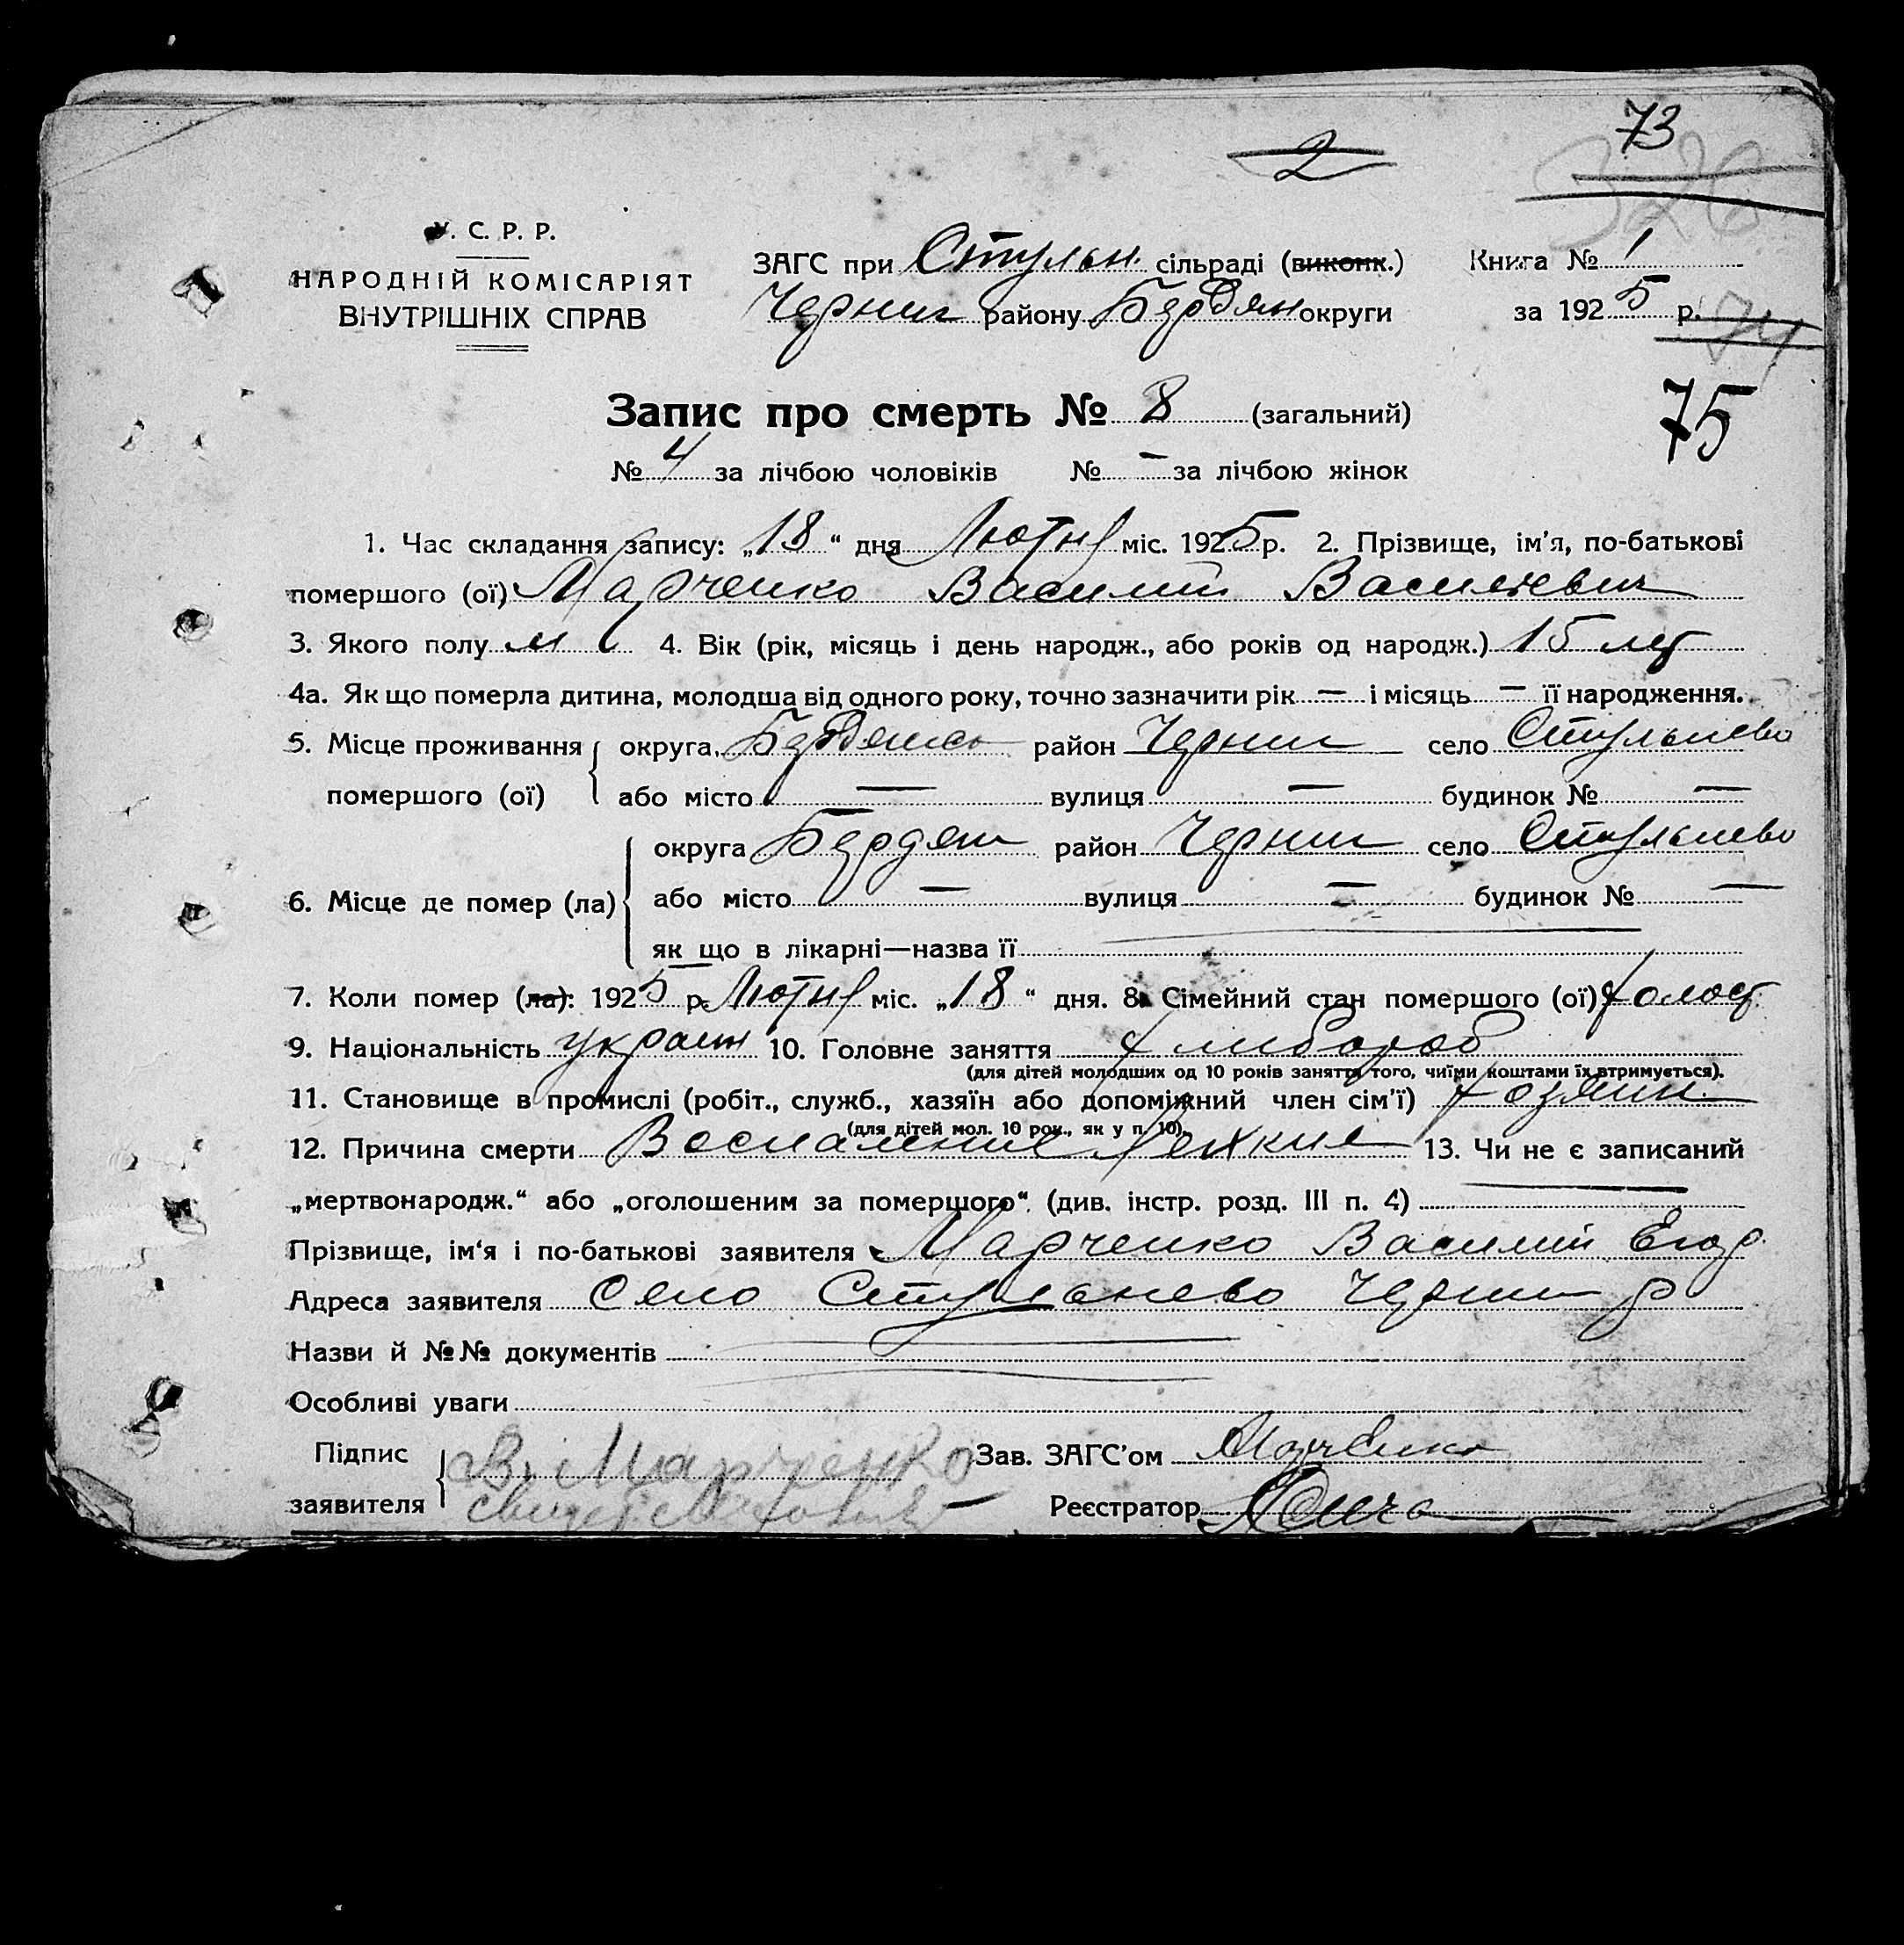 73
2
326
У. С. Р. Р.
НАРОДНІЙ КОМІСАРІЯТ
ВНУТРІШНІХ СПРАВ
ЗАГС при Стульн. сільраді (виконк.)
Черниг району Бердян округи
Книга № 1
за 1925 р.
74
75
Запис про смерть № 8 (загальний)
№ 4 за лічбою чоловіків № — за лічбою жінок
1. Час складання запису: „18“ дня Лютня міс. 1925 р. 2. Прізвище, ім’я, по-батькові
помершого (ої) Марченко Василий Васильевич
3. Якого полу м 4. Вік (рік, місяць і день народж., або років од народж.) 15 лет
4а. Як що померла дитина, молодша від одного року, точно зазначити рік — і місяць — її народження.
5. Місце проживання помершого (ої) округа Бердянсь район Черниг село Стульнево
або місто — вулиця — будинок № —
6. Місце де помер (ла) округа Бердян район Черниг село Стульнево
або місто — вулиця — будинок № —
як що в лікарні—назва її
7. Коли помер (ла): 1925 р. Лютня міс. „18“ дня. 8. Сімейний стан помершого (ої) холост
9. Національність украин 10. Головне заняття хлибороб
(для дітей молодших од 10 років заняття того, чиїми коштами їх втримується).
11. Становище в промислі (робіт., служб., хазяїн або допоміжний член сім’ї) хозяин.
(для дітей мол. 10 рок., як у п. 10).
12. Причина смерти Воспаление 13. Чи не є записаний
„мертвонародж.“ або „оголошеним за померщого“ (див. інстр. розд. III п. 4)
Прізвище, ім‘я і по-батькові заявителя Марченко Василий Егор.
Адреса заявителя Село Стульнево Черниг р
Назви й №№ документів
Особливі уваги
Підпис заявителя В. Марченко
Зав. ЗАГС’ом Марченко
Реєстратор